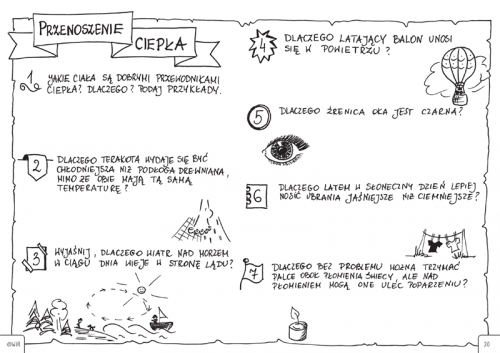 PRZENOSZENIE
CIEPŁA
1
JAKIE CIAŁA SĄ DOBRYMI PRZEWODNIKAMI
CIEPŁA? DLACZEGO? PODAJ PRZYKŁADY.
2
DLACZEGO TERAKOTA WYDAJE SIĘ BYĆ
CHŁODNIEJSZA NIŻ PODŁOGA DREWNIANA,
MIMO ŻE OBIE MAJĄ TĄ SAMĄ
TEMPERATURĘ?
3
WYJAŚNIJ, DLACZEGO WIATR NAD MORZEM
W CIĄGU DNIA WIEJE W STRONĘ LĄDU?
4
DLACZEGO LATAJĄCY BALON UNOSI
SIĘ W POWIETRZU?
5
DLACZEGO ŹRENICA OKA JEST CZARNA?
6
DLACZEGO LATEM W SŁONECZNY DZIEŃ LEPIEJ
NOSIĆ UBRANIA JAŚNIEJSZE NIŻ CIEMNIEJSZE?
7
DLACZEGO BEZ PROBLEMU MOŻNA TRZYMAĆ
PALCE OBOK PŁOMIENIA ŚWIECY, ALE NAD
PŁOMIENIEM MOGĄ ONE ULEC POPARZENIU?